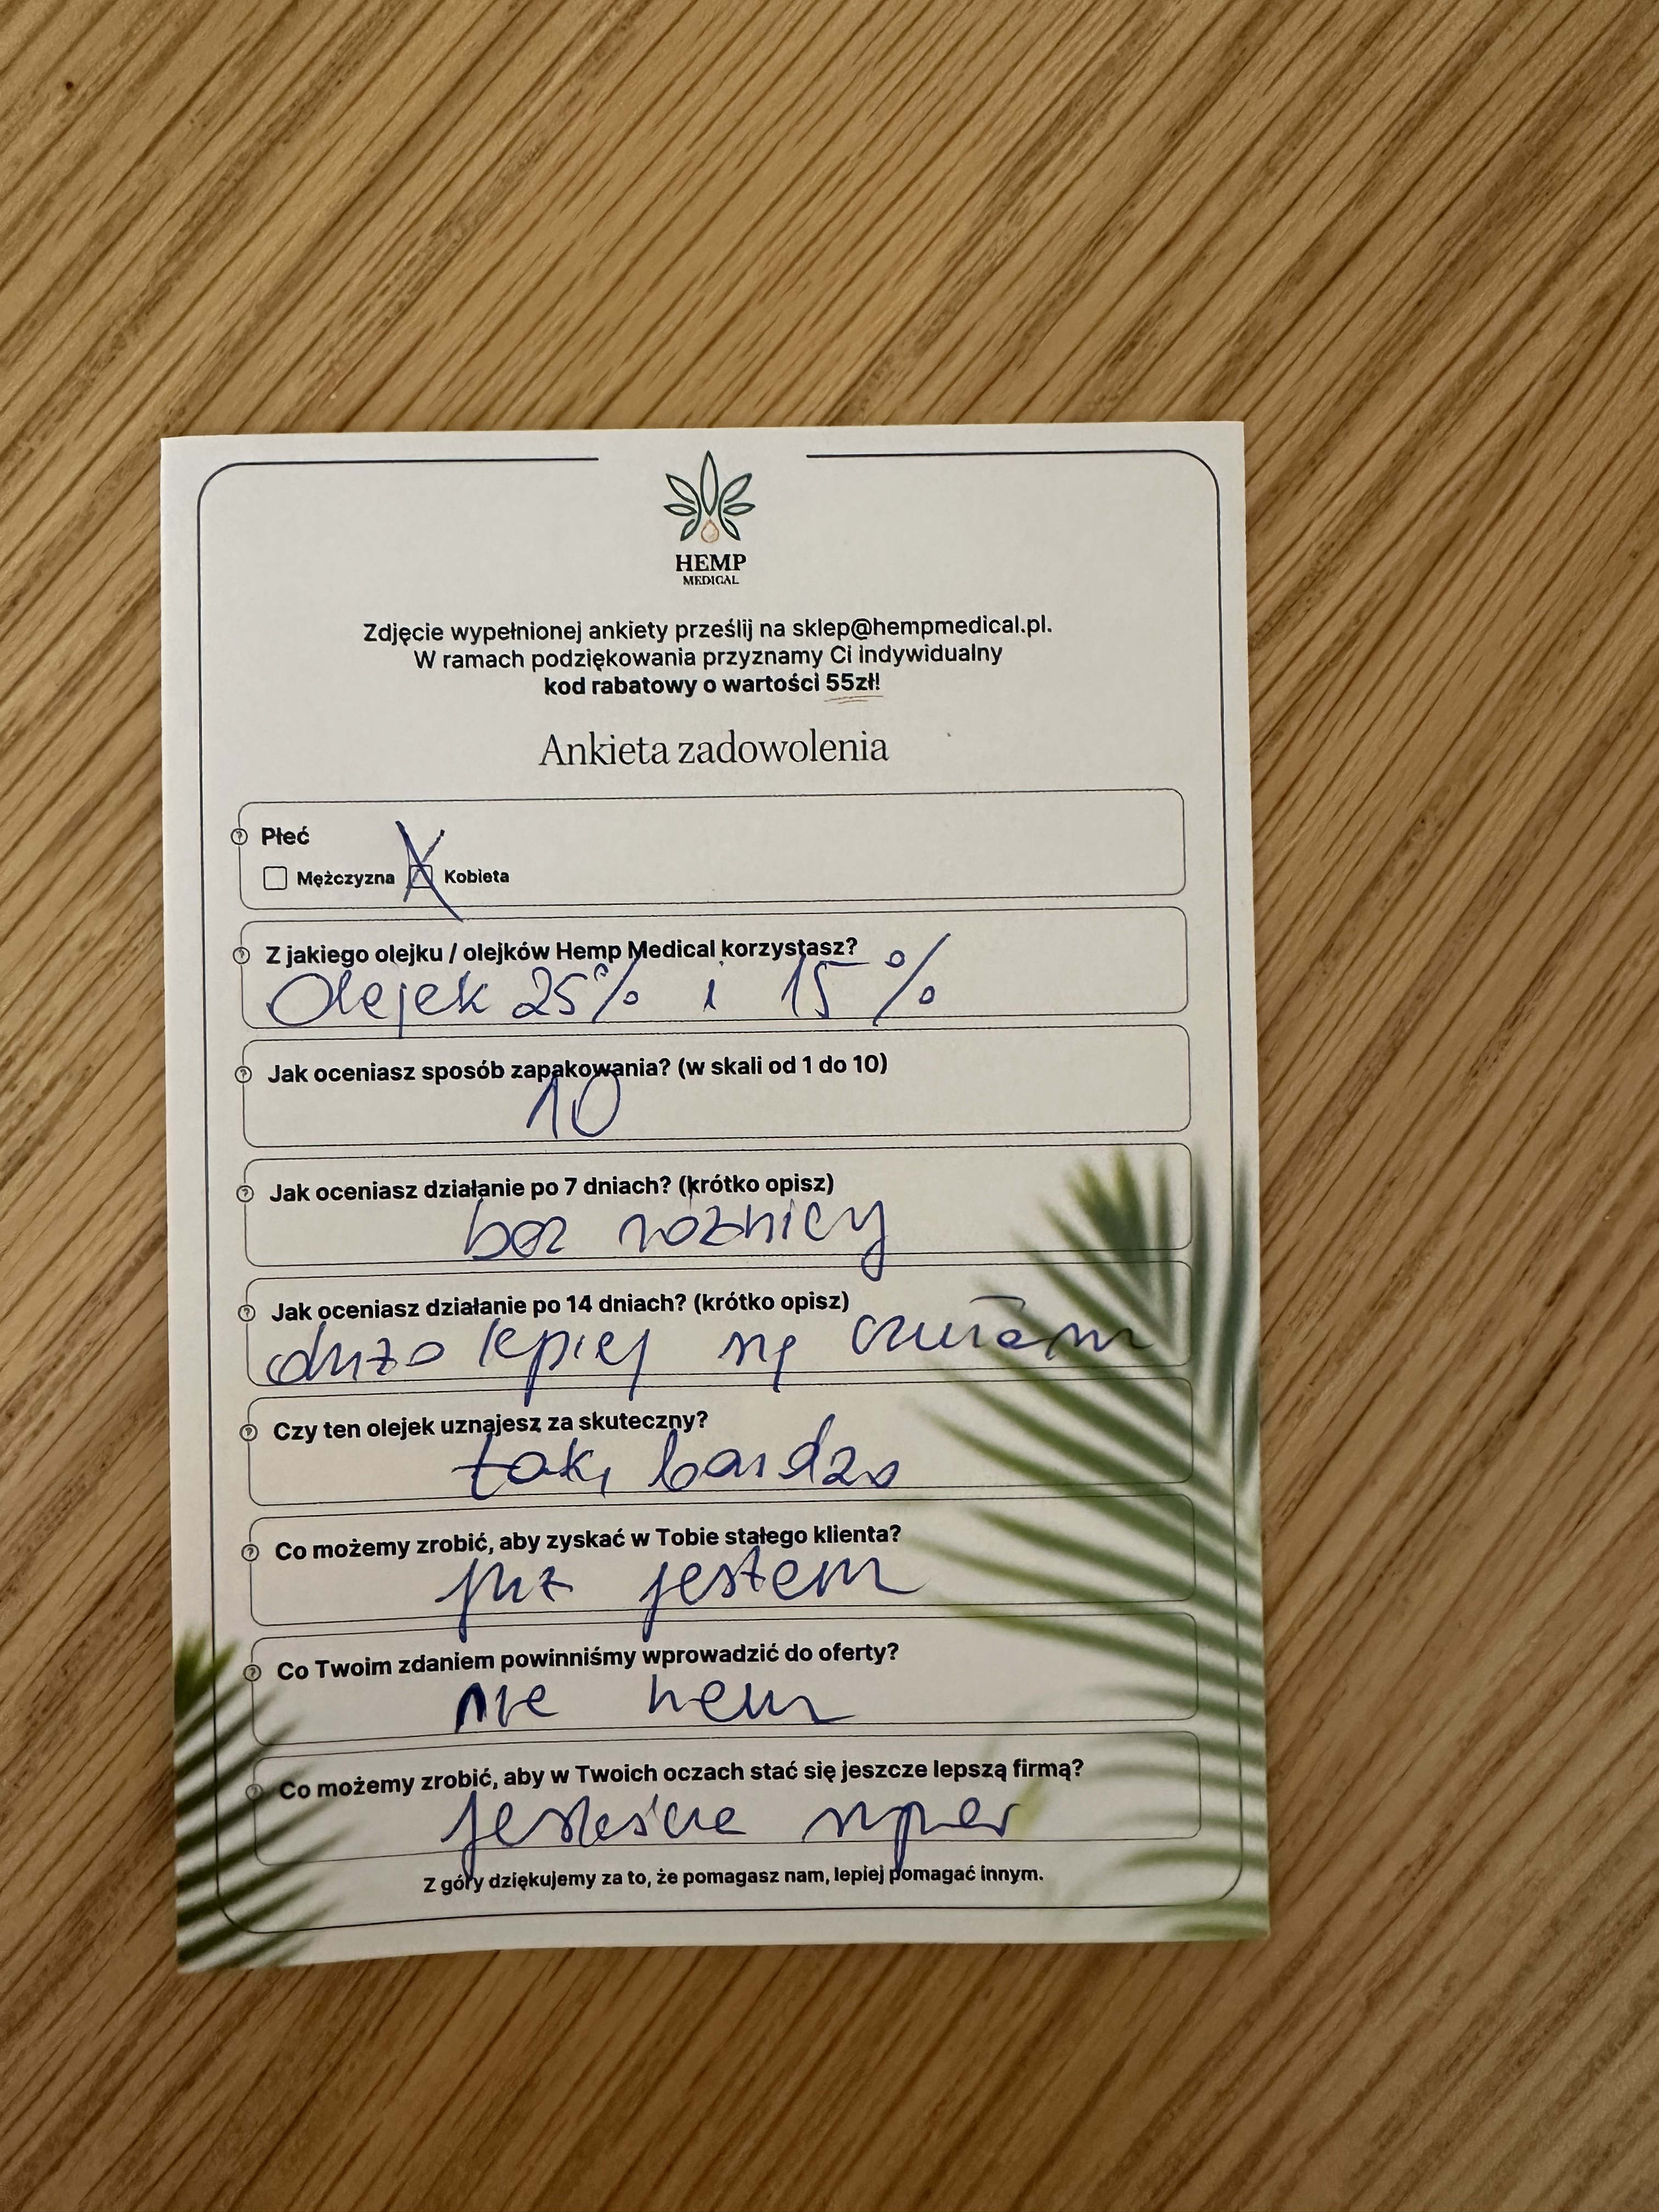 HEMP
MEDICAL
Zdjęcie wypełnionej ankiety prześlij na sklep@hempmedical.pl.
W ramach podziękowania przyznamy Ci indywidualny
kod rabatowy o wartości 55zł!
Ankieta zadowolenia
Płeć
Mężczyzna X Kobieta
Z jakiego olejku / olejków Hemp Medical korzystasz?
Olejek 25% i 15%
Jak oceniasz sposób zapakowania? (w skali od 1 do 10)
10
Jak oceniasz działanie po 7 dniach? (krótko opisz)
bez różnicy
Jak oceniasz działanie po 14 dniach? (krótko opisz)
dużo lepiej się czułam
Czy ten olejek uznajesz za skuteczny?
tak, bardzo
Co możemy zrobić, aby zyskać w Tobie stałego klienta?
już jestem
Co Twoim zdaniem powinniśmy wprowadzić do oferty?
nie wem
Co możemy zrobić, aby w Twoich oczach stać się jeszcze lepszą firmą?
jesteście super
Z góry dziękujemy za to, że pomagasz nam, lepiej pomagać innym.